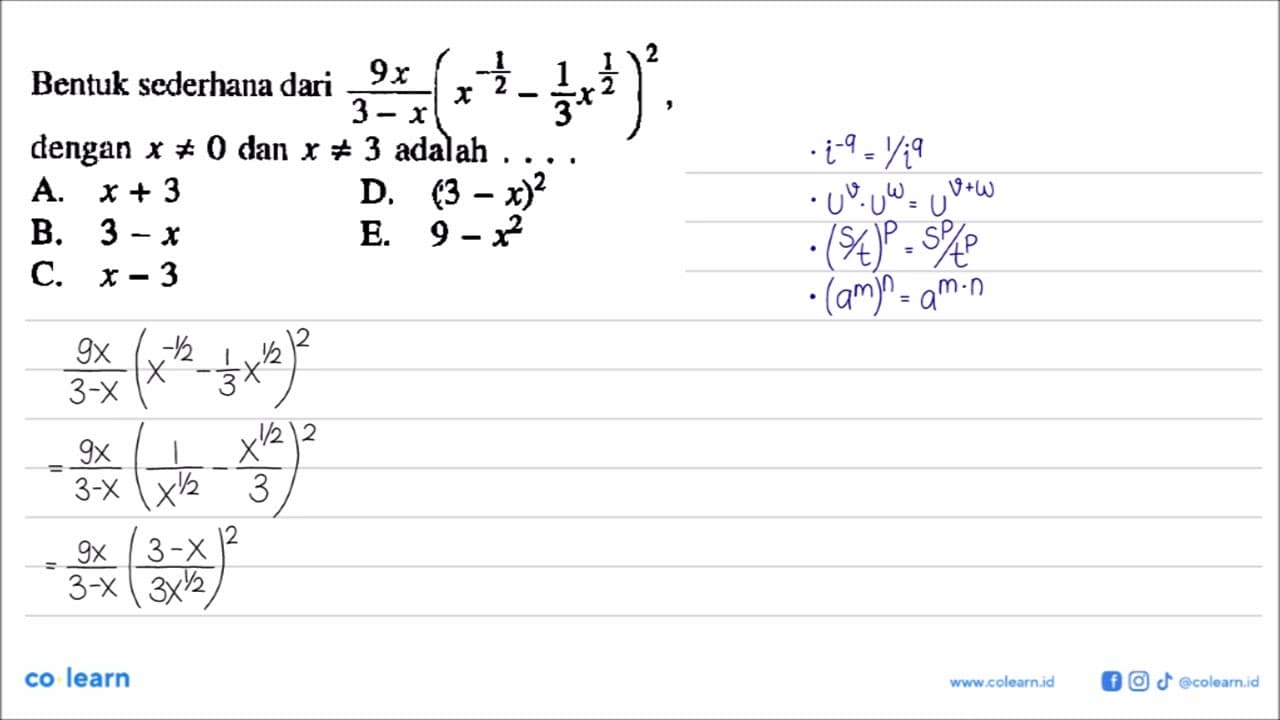 Bentuk sederhana dari \frac{9x}{3-x}\left(x^{-\frac{1}{2}} - \frac{1}{3}x^{\frac{1}{2}}\right)^2,
dengan x ≠ 0 dan x ≠ 3 adalah . . . .
A. x + 3
B. 3 − x
C. x − 3
D. (3 − x)²
E. 9 − x²
· i^{-q} = 1/i^q
· U^v · U^w = U^{v+w}
· (s/t)^p = s^p/t^p
· (a^m)^n = a^{m·n}
\frac{9x}{3-x}\left(x^{-1/2} - \frac{1}{3}x^{1/2}\right)^2
= \frac{9x}{3-x}\left(\frac{1}{x^{1/2}} - \frac{x^{1/2}}{3}\right)^2
= \frac{9x}{3-x}\left(\frac{3-x}{3x^{1/2}}\right)^2
co learn
www.colearn.id
@colearn.id